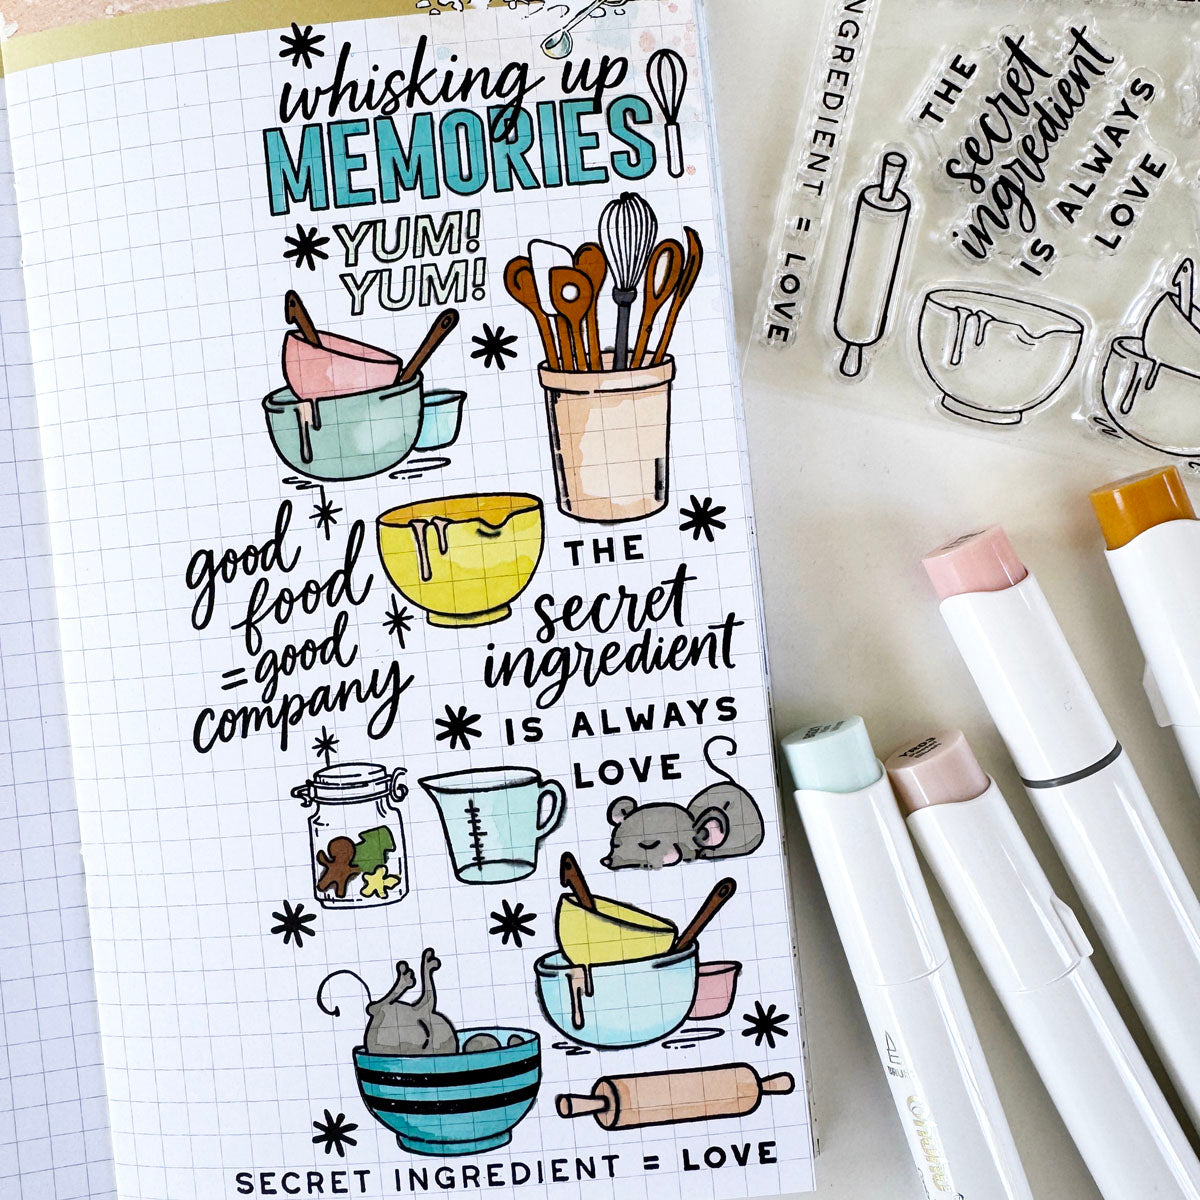 whisking up
MEMORIES
YUM!
YUM!
good
food
= good
company
THE
secret
ingredient
IS ALWAYS
LOVE
SECRET INGREDIENT = LOVE
INGREDIENT = LOVE
THE
secret
ingredient
IS ALWAYS
LOVE
YR03